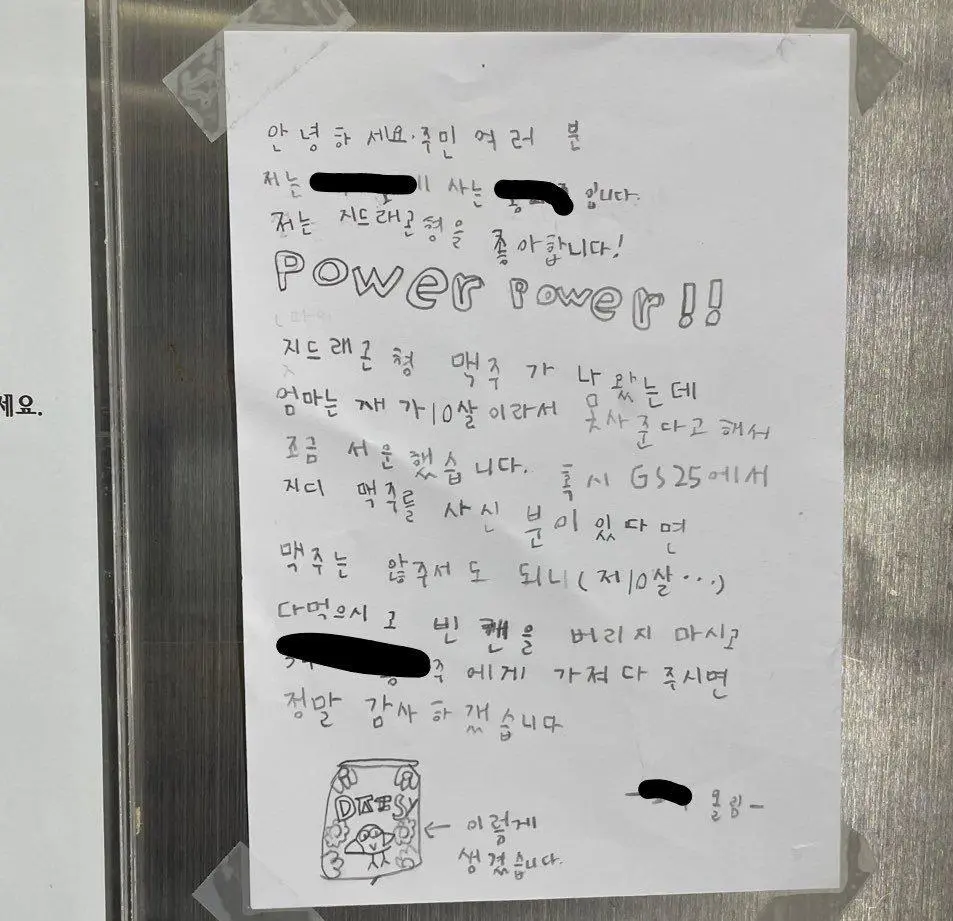 세요.
안녕하세요. 주민 여러 분
저는 사는 입니다.
저는 지드래곤형을 좋아합니다!
POWER POWER!!
지드래곤 형 맥주 가 나왔는데
엄마는 재 가 10살 이라서 못사 준다고 해서
조금 서운했습니다. 혹시 GS25에서
지디 맥주를 사신 분이 있다면
맥주는 않주서도 되니(제10살...)
다먹으시고 빈 캔을 버리지 마시고
주에게 가져다 주시면
정말 감사하겠습니다
- 올림-
← 이렇게
생겼습니다.